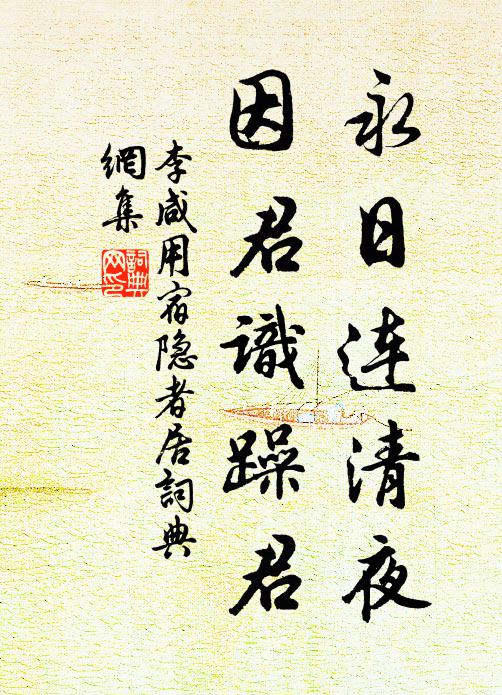 永日连清夜
因君識躁君
李咸用宿隐者居詞典
網集
詞典
网印